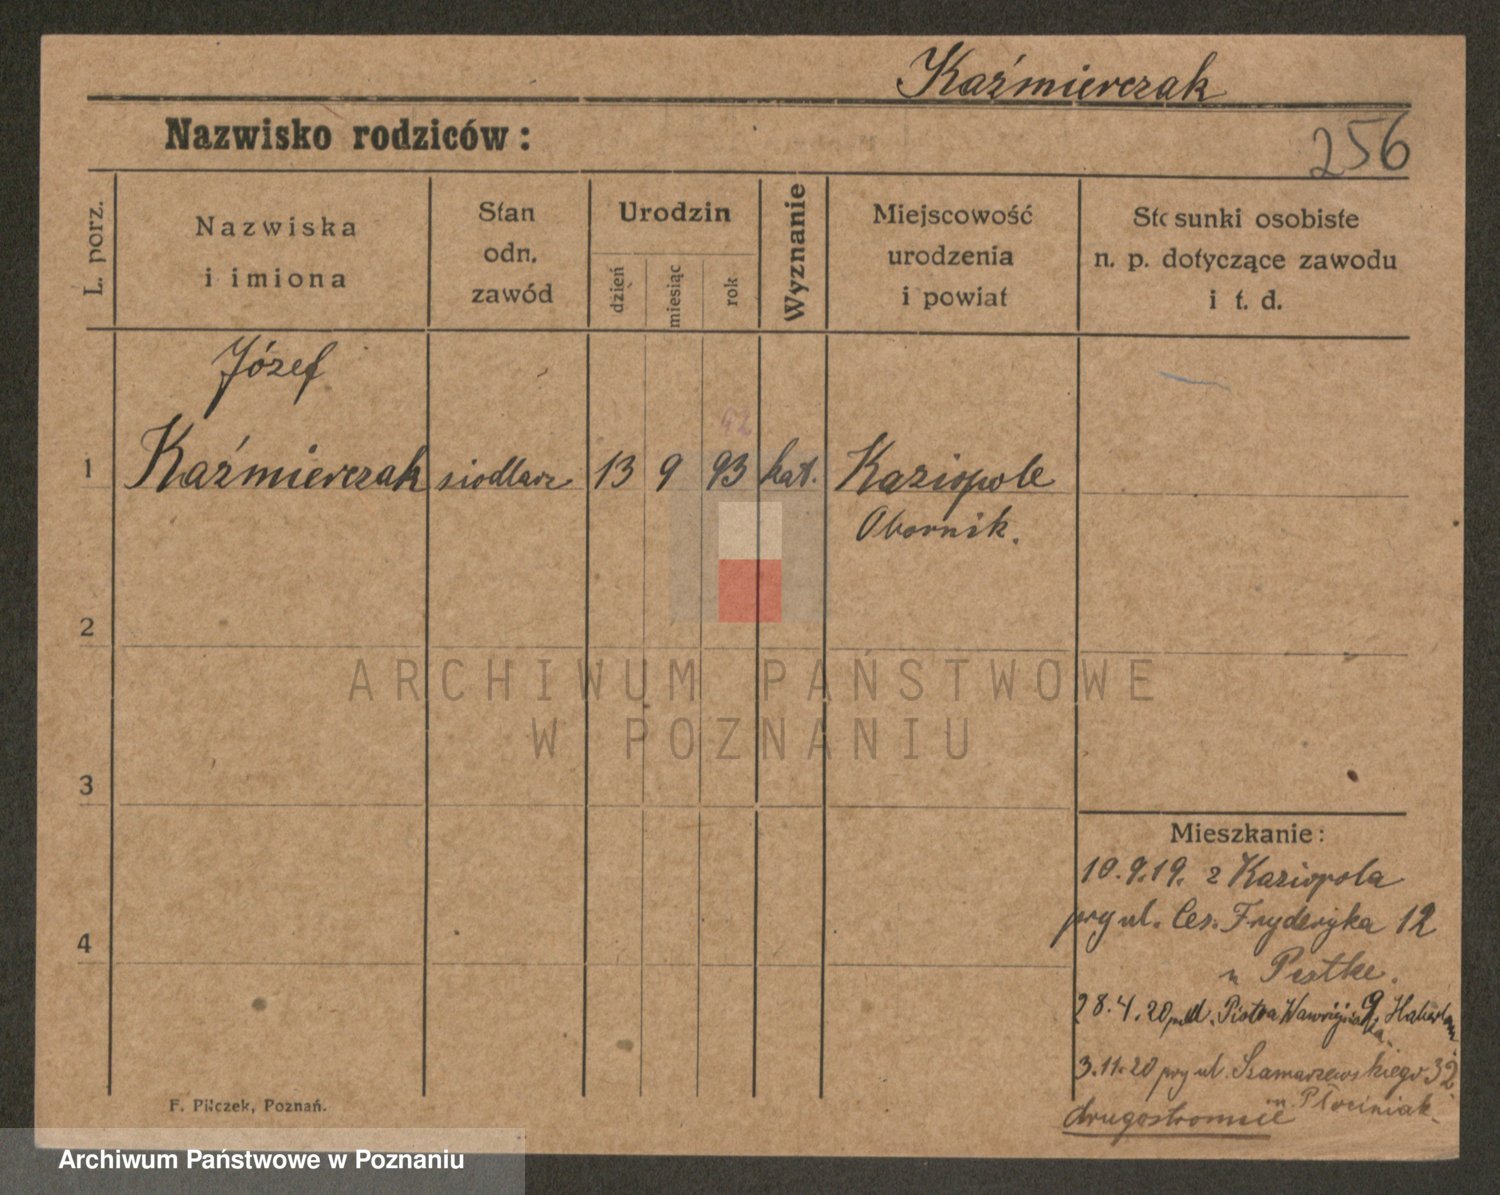 Kaźmierczak
Nazwisko rodziców:
256
L. porz.
Nazwiska
i imiona
Stan
odn.
zawód
Urodzin
dzień
miesiąc
rok
Wyznanie
Miejscowość
urodzenia
i powiat
Stosunki osobiste
n. p. dotyczące zawodu
i t. d.
Józef
42
1 Kaźmierczak siodlarz 13 9 93 kat. Kaziopole
Obornik.
2
ARCHIWUM PAŃSTWOWE
W POZNANIU
3
Mieszkanie:
10.9.19. z Kaziopola
4
przy ul. Ces. Fryderyka 12
u Pestke.
28.4.20 Piotra Wawrzyniaka 9
3.11.20 przy ul. Szamarzewskiego 32
u Płóciniak
drugostronnie
F. Pilczek, Poznań.
Archiwum Państwowe w Poznaniu